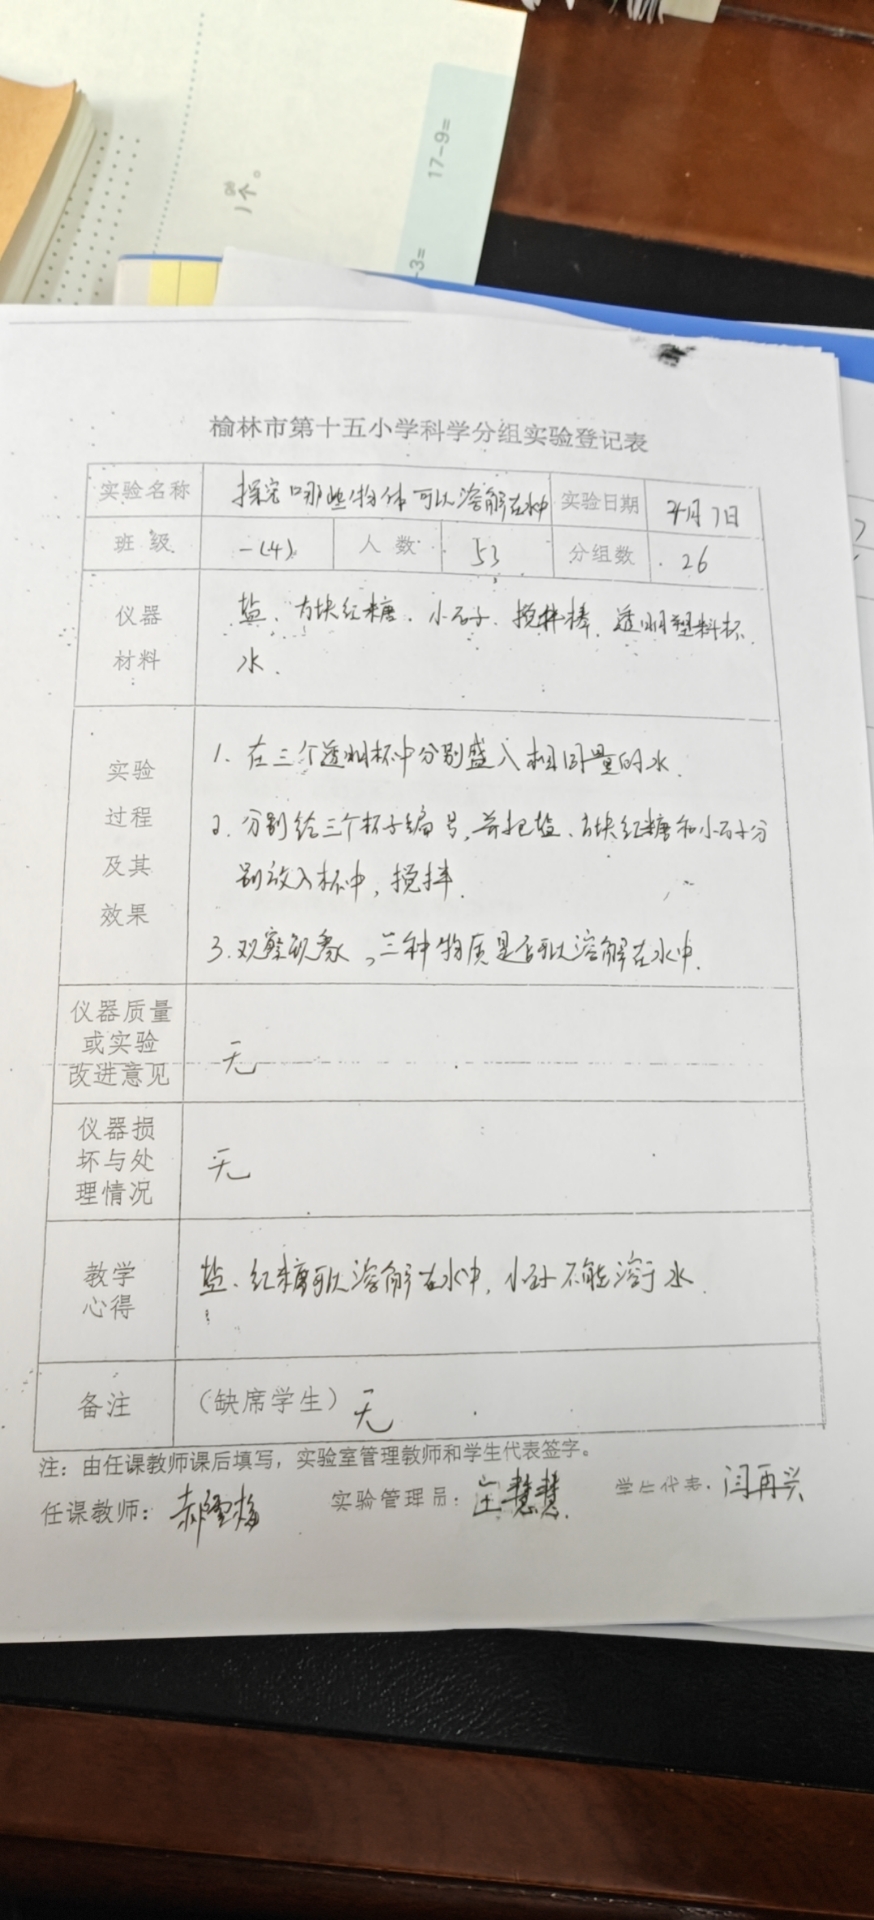 17-9=
-3=
个。
榆林市第十五小学科学分组实验登记表
实验名称 探究哪些物体可以溶解在水中 实验日期 月7日
班级 一(4) 人数 53 分组数 26
仪器 盐、方块红糖、小石子、搅拌棒、透明塑料杯、
材料 水、
实验 1. 在三个透明杯中分别盛入相同量的水.
过程 2. 分别给三个杯子编号,并把盐、方块红糖和小石子分
及其 别放入杯中,搅拌.
效果 3. 观察现象,三种物质是否可以溶解在水中.
仪器质量
或实验
改进意见 无
仪器损
坏与处 无
理情况
教学 盐、红糖可以溶解在水中,小石子不能溶于水.
心得
备注 (缺席学生) 无
注:由任课教师课后填写,实验室管理教师和学生代表签字。
任课教师:郝雪梅 实验管理员:慧慧 学生代表:闫再兴